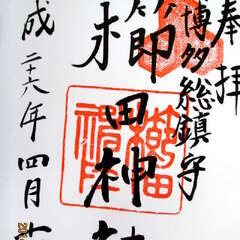 奉拝
博多総鎮守
櫛田神社
成二十六年四月十